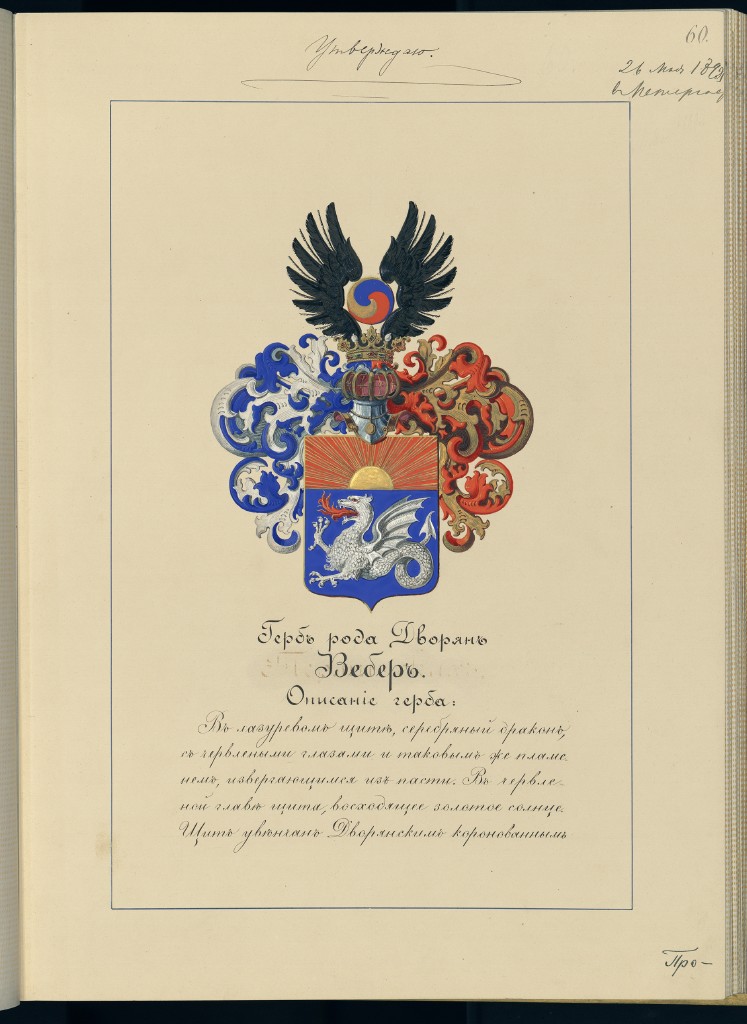 60.
Утверждаю.
26 Мая 189
Гербъ рода Дворянъ
Веберъ.
Описаніе герба:
Въ лазуревомъ щитѣ, серебряный драконъ,
съ червлеными глазами и таковымъ же пламе-
немъ, извергающимся изъ пасти. Въ червле-
ной главѣ щита, восходящее золотое солнце.
Щитъ увѣнчанъ Дворянскимъ коронованнымъ
Про-